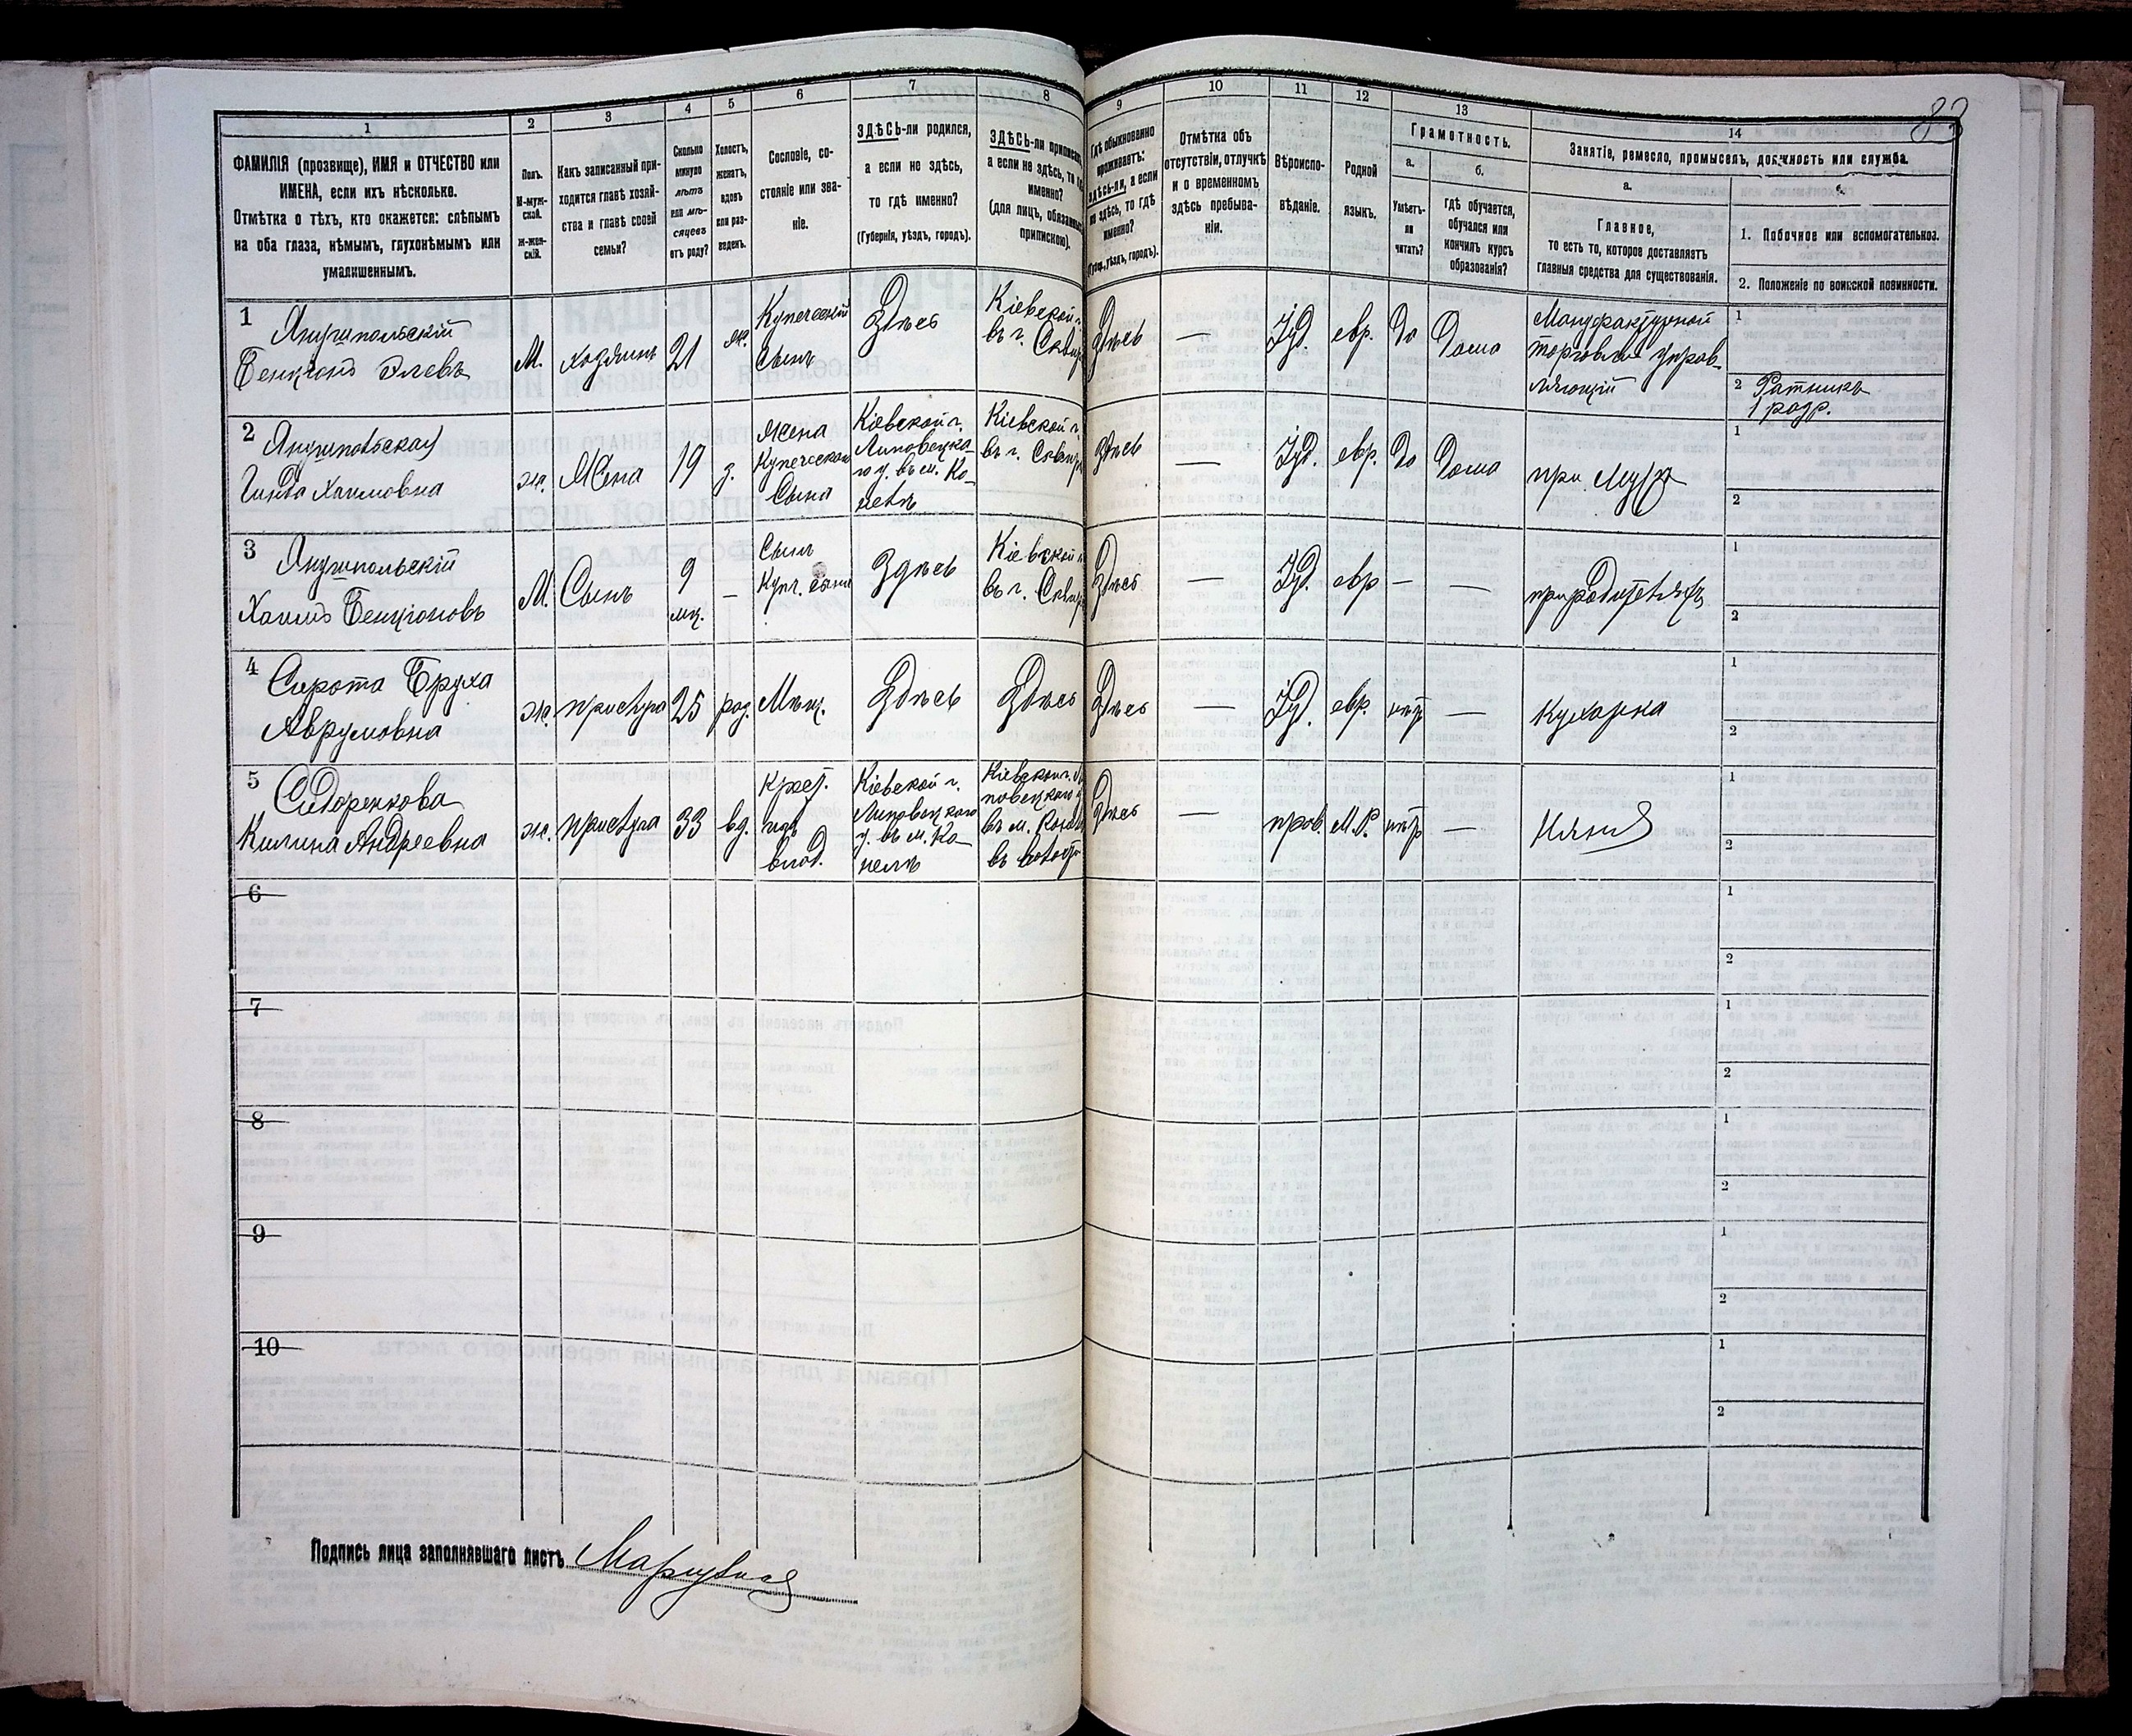 83
1
2
3
4
5
6
7
8
9
10
11
12
13
14
ФАМИЛІЯ (прозвище), ИМЯ и ОТЧЕСТВО или
ИМЕНА, если ихъ нѣсколько.
Отмѣтка о тѣхъ, кто окажется: слѣпымъ
на оба глаза, нѣмымъ, глухонѣмымъ или
умалишеннымъ.
Полъ.
М-муж-
ской.
Ж-жен-
скій.
Какъ записанный при-
ходится главѣ хозяй-
ства и главѣ своей
семьи?
Сколько
минуло
лѣтъ
или мѣ-
сяцевъ
отъ роду?
Холостъ,
женатъ,
вдовъ
или раз-
веденъ.
Сословіе, со-
стояніе или зва-
ніе.
ЗДѢСЬ-ли родился,
а если не здѣсь,
то гдѣ именно?
(Губернія, уѣздъ, городъ).
ЗДѢСЬ-ли приписанъ,
а если не здѣсь, то гдѣ
именно?
(для лицъ, обязанныхъ
припискою).
Гдѣ обыкновенно
проживаетъ:
здѣсь-ли, а если
не здѣсь, то гдѣ
именно?
(Губ., уѣздъ, городъ).
Отмѣтка объ
отсутствіи, отлучкѣ
и о временномъ
здѣсь пребыва-
ніи.
Вѣроиспо-
вѣданіе.
Родной
языкъ.
Грамотность.
а.
Умѣетъ-
ли
читать?
б.
гдѣ обучается,
обучался или
кончилъ курсъ
образованія?
Занятіе, ремесло, промыселъ, должность или служба.
а.
Главное,
то есть то, которое доставляетъ
главныя средства для существованія.
1. Побочное или вспомогательное.
2. Положеніе по воинской повинности.
1
Янушпольскій
Бенціонъ Элевъ
М.
хозяинъ
21
ж.
Купеческій
сынъ
Здѣсь
Кіевской г.
въ г. Сквир
Здѣсь
—
Іуд.
евр.
да
Дома
Мануфактурной
торговли управ-
ляющій
1
2 Ратникъ
1 разр.
2
Янушпольская
Гинда Хаимовна
ж.
Жена
19
з.
жена
Купеческаго
Сына
Кіевской г.
Липовецка-
го у. въ м. Ко-
нелѣ
Кіевской г.
въ г. Сквир
Здѣсь
—
Іуд.
евр.
да
Дома
при мужѣ
1
2
3
Янушпольскій
Хаимъ Бенціоновъ
М.
Сынъ
9
мц.
—
Сынъ
Куп. сына
Здѣсь
Кіевской г.
въ г. Сквир
Здѣсь
—
Іуд.
евр
—
—
при родителяхъ
1
2
4
Сирота Бруха
Аврумовна
ж.
прислуга
25
раз.
Мѣщ.
Здѣсь
Здѣсь
Здѣсь
—
Іуд.
евр.
нѣтъ
—
Кухарка
1
2
5
Сидоренкова
Килина Андреевна
ж.
прислуга
33
вд.
Крест.
изъ
влад.
Кіевской г.
Липовецкаго
у. въ м. Ко-
нелѣ
Кіевской г. Ли
повецкаго у
въ м. Конел
въ волости
Здѣсь
—
прав.
М.Р.
нѣтъ
—
Няня
1
2
6
1
2
7
1
2
8
1
2
9
1
2
10
1
2
Подпись лица заполнявшаго листъ